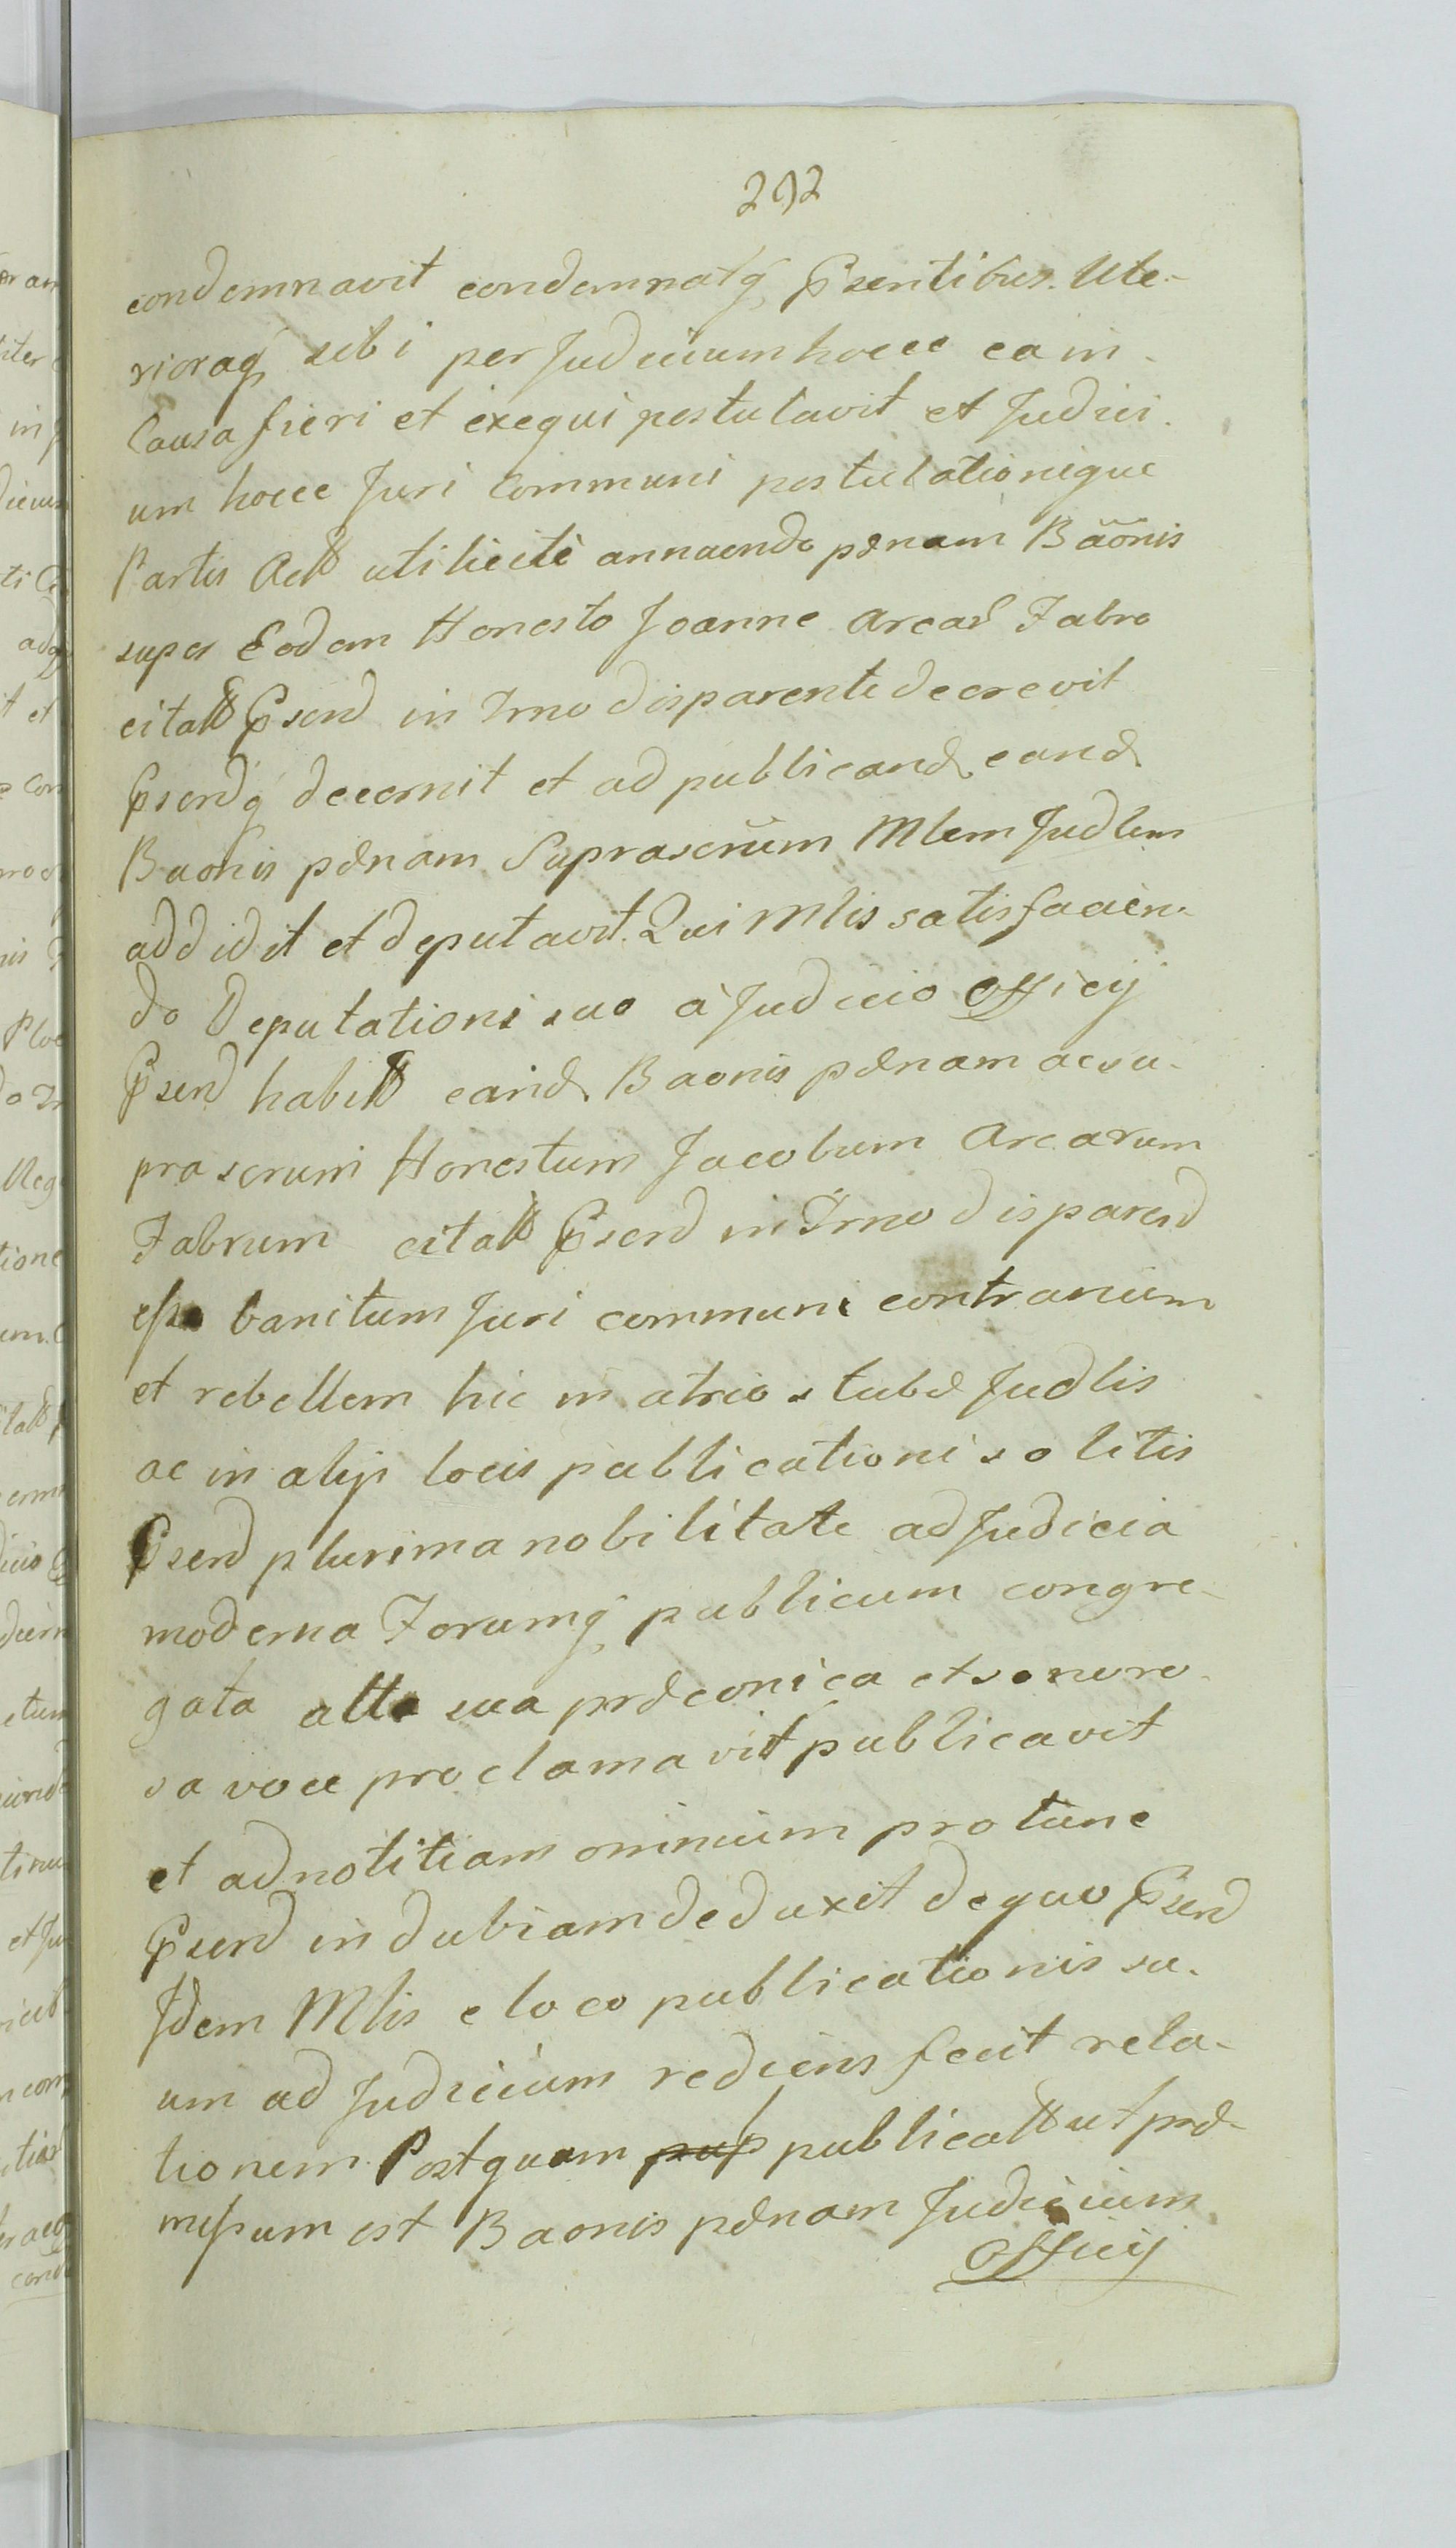 292
condemnavit condemnatq Psentibus. Ulte-
rioraq sibi per Judicium hocce ea in
Causa fieri et exequi postulavit et Judici
um hocce Juri Communi postulationique
Partis Actt uti licitè annuendo pænam Bãõnis
super Eodem Honesto Joanne Arcar Fabro
citatt Psend in Trno disparente decrevit
Psendq decernit et ad publicand eand
Baonis pænam Suprascrũm Mlem Judlem
addidit et deputavit. Qui Mlis satisfacien-
do Deputationi suo à Judicio Officij
Psend habitt eand Baonis pænam ac su-
prascrum Honestum Jacobum Arcarum
Fabrum citatt Psend in Trno disparend
esse banitum Juri communi contrarium
et rebellem hic in atrio stubæ Judlis
ac in alijs locis publicationi solitis
Psend plurima nobilitate ad Judicia
moderna Forumq publicum congre-
gata alta sua præconica et sonoro-
sa voce proclamavit publicavit
et ad notitiam omnium pro tunc
Psend indubiam deduxit de quo Psend
Idem Mlis e loco publicationis su-
um ad Judicium rediens fecit rela-
tionem. Postquam pup publicatt ut præ-
missum est Baonis pænam Judicium
Officij